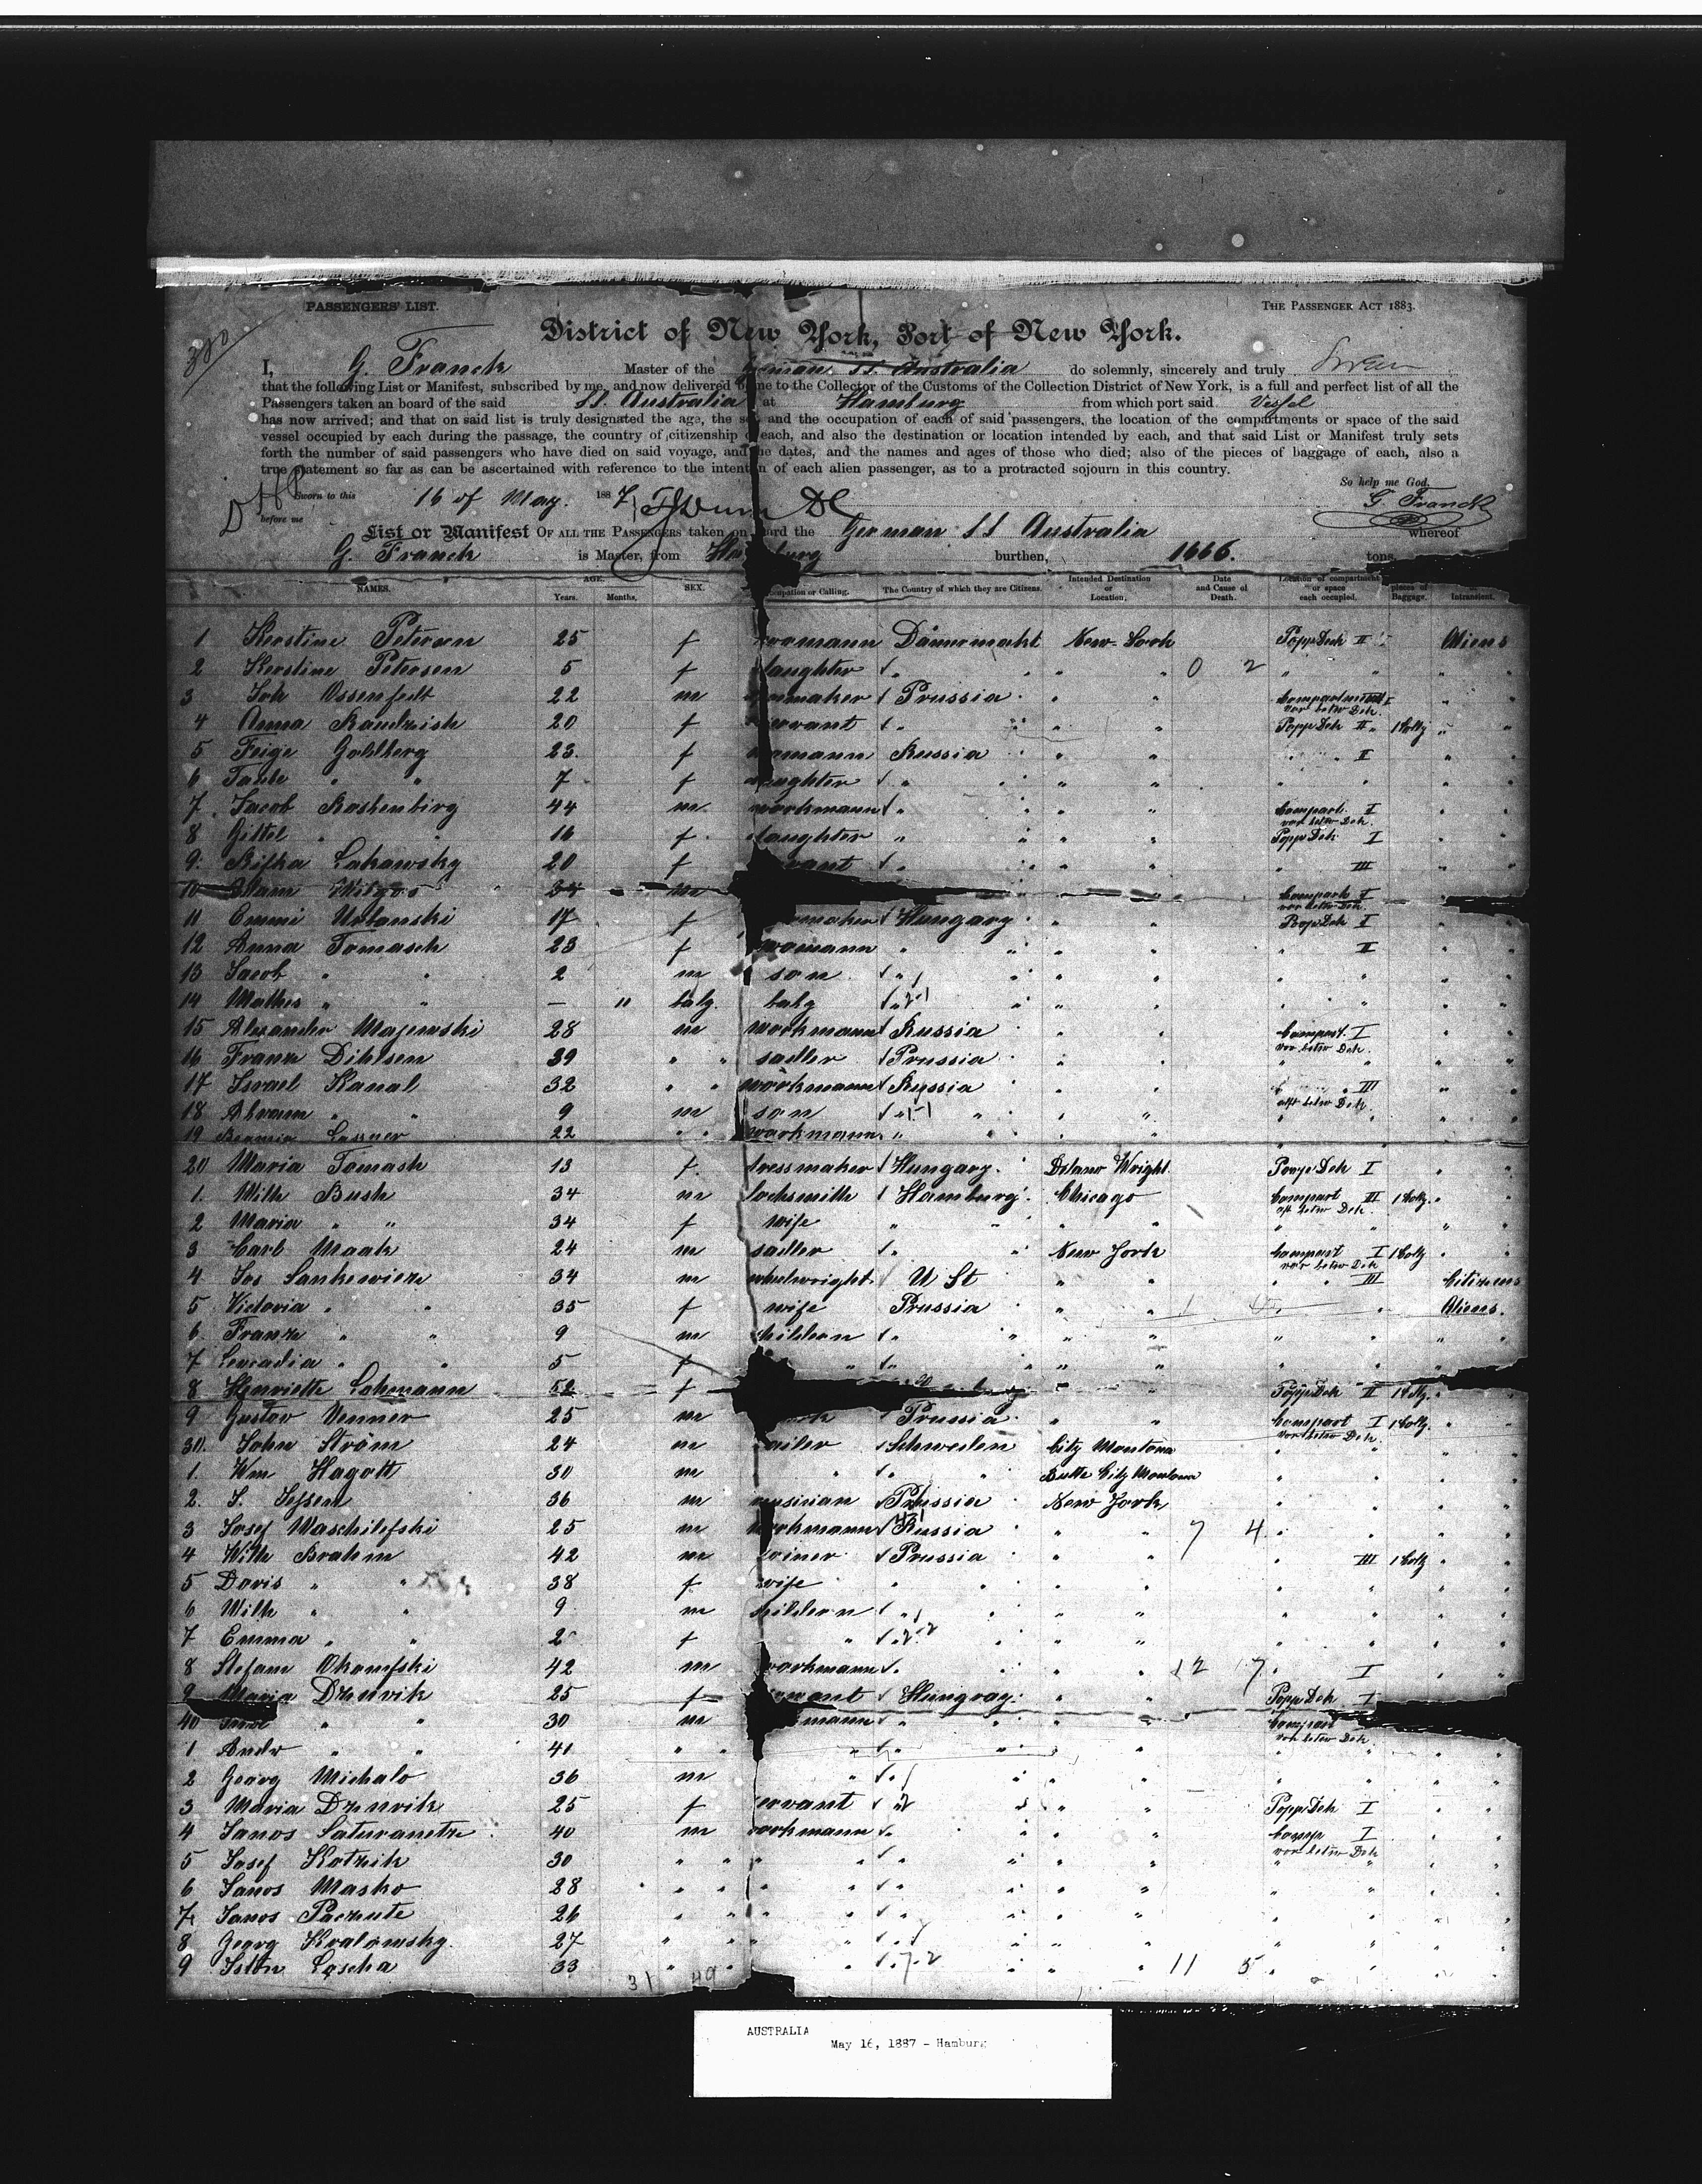 PASSENGERS' LIST. THE PASSENGER ACT 1883.
380
District of New York, Port of New York.
I, G. Franck Master of the German SS. Australia do solemnly, sincerely and truly Swear
that the following List or Manifest, subscribed by me, and now delivered by me to the Collector of the Customs of the Collection District of New York, is a full and perfect list of all the
Passengers taken on board of the said SS. Australia at Hamburg from which port said Vessel
has now arrived; and that on said list is truly designated the age, the sex and the occupation of each of said passengers, the location of the compartments or space of the said
vessel occupied by each during the passage, the country of citizenship of each, and also the destination or location intended by each, and that said List or Manifest truly sets
forth the number of said passengers who have died on said voyage, and the dates, and the names and ages of those who died; also of the pieces of baggage of each, also a
true statement so far as can be ascertained with reference to the intention of each alien passenger, as to a protracted sojourn in this country.
So help me God.
Sworn to this 16 of May. 1887 G Franck
before me
List or Manifest OF ALL THE PASSENGERS taken on board the German SS Australia whereof
G. Franck is Master, from Hamburg burthen, 1666. tons.
NAMES. AGE. Years. Months, SEX. Occupation or Calling. The Country of which they are Citizens. Intended Destination or Location, Date and Cause of Death. Location of compartment or space each occupied. pieces of Baggage. Intransient.
1 Kerstine Petersen 25 f woomann Dännemaht New-York Popp Deck II Aliens
2 Kerstine Petersen 5 f daughter " " " 0 2 " " "
3 Joh Ossenfedt 22 m maker Prussia " " Compartment I vor betw Dek. "
4 Anna Kandzish 20 f servant " " " Popp Deh II 1 Colly " "
5 Feige Gohlberg 23. f womann Russia " " " II "
6 Taube " " 7 f daughter " " " " "
7 Jacob Kashenbirg 44 m. workmann " " " Compart. I vor betw Deh. "
8 Gittel " " 16 f daughter " " " Popp Deh I "
9 Rifka Lakawsky 20 f servant " " " III "
10 34 m Compart I vor betw Deh.
11 Emmi Urbanski 17 f maker Hungary " " Popp Deh I "
12 Anna Tomasch 23 f woomann " " " II "
13 Jacob " " 2 m son " " " " "
14 Mathes " " — " baby. baby " 2-1 " " " "
15 Alexander Majewski 28 m workmann Russia " " Compart. I vor betw Deh. "
16 Franz Dihlsen 39 " " sadler Prussia " " " " "
17 Israel Kanal 32 " " workmann Russia " " " III aft betw Deh. "
18 Abram " " 9 m son " 1-1 " " " " "
19 Lassner 22 " " workmann " " " " "
20 Maria Tomash 13 f. dressmaker Hungary. Delano Wright Popp Deh I "
1. Wilh Bush 34 m locksmith Hamburg Chicago Compart III aft betw Deh. 1 Colly. "
2 Maria " " 34 f wife " " " " " "
3 Carl Maak 24 m sadler " New York Compart I vor betw Deh 1 Colly "
4 Jos Sankewiczn 34 m whelwright U St " " " III Citizens
5 Victoria " " 35 f wife Prussia " " " " Aliens.
6. Franz " " 9 m childern " " " " " "
7 Leocadia " " 5 f " " " " " " "
8 Henriette Lohmann 52 f " " Popp Deh II 1 Colly. "
9 Gustav Venner 25 m Prussia " " Compart I vor betw Deh. 1 Colly. "
30. John Ström 24 m sailer Schweden City Montana " " "
1. Wm Hagott 30 m " " " Butte City Montana " " "
2. J. Jessen 36 m musician Prussia New York " " "
3 Josef Waschilefski 25 m workmann Russia " " 7 4 " " "
4 Wilh Brahm 42 m joiner Prussia " " " III 1 Colly "
5 Doris " " 38 f wife " " " " " "
6 Wilh " " 9 m childern " " " " " "
7 Emma " " 2 f " " 2-2 " " " " "
8 Stefann Okanefski 42 m workmann " " " 12 7 " I "
9 Maria Dznvik 25 f servant Hungray. " " Popp Deh I "
40 " " 30 m mann " " " Compart vor betw Deh. "
1 Andr " " 41 " " " " " " " " "
2 Georg Michalo 36 m " " " " " " "
3 Maria Dznvik 25 f servant " 2 " " Popp Deh I "
4 Janos Saturanetz 40 m workmann " " " Comp I vor betw Deh "
5 Josef Kotzik 30 " " " " " " " " " "
6 Janos Masko 28 " " " " " " " " " "
7 Janos Paeznte 26 " " " " " " " " " "
8 Georg Kvalowsky. 27 " " " " " " " " " "
9 Istvn Loscha 33 " " " " 7-2 " " 11 5 " " "
31 49
AUSTRALIA
May 16, 1887 - Hamburg